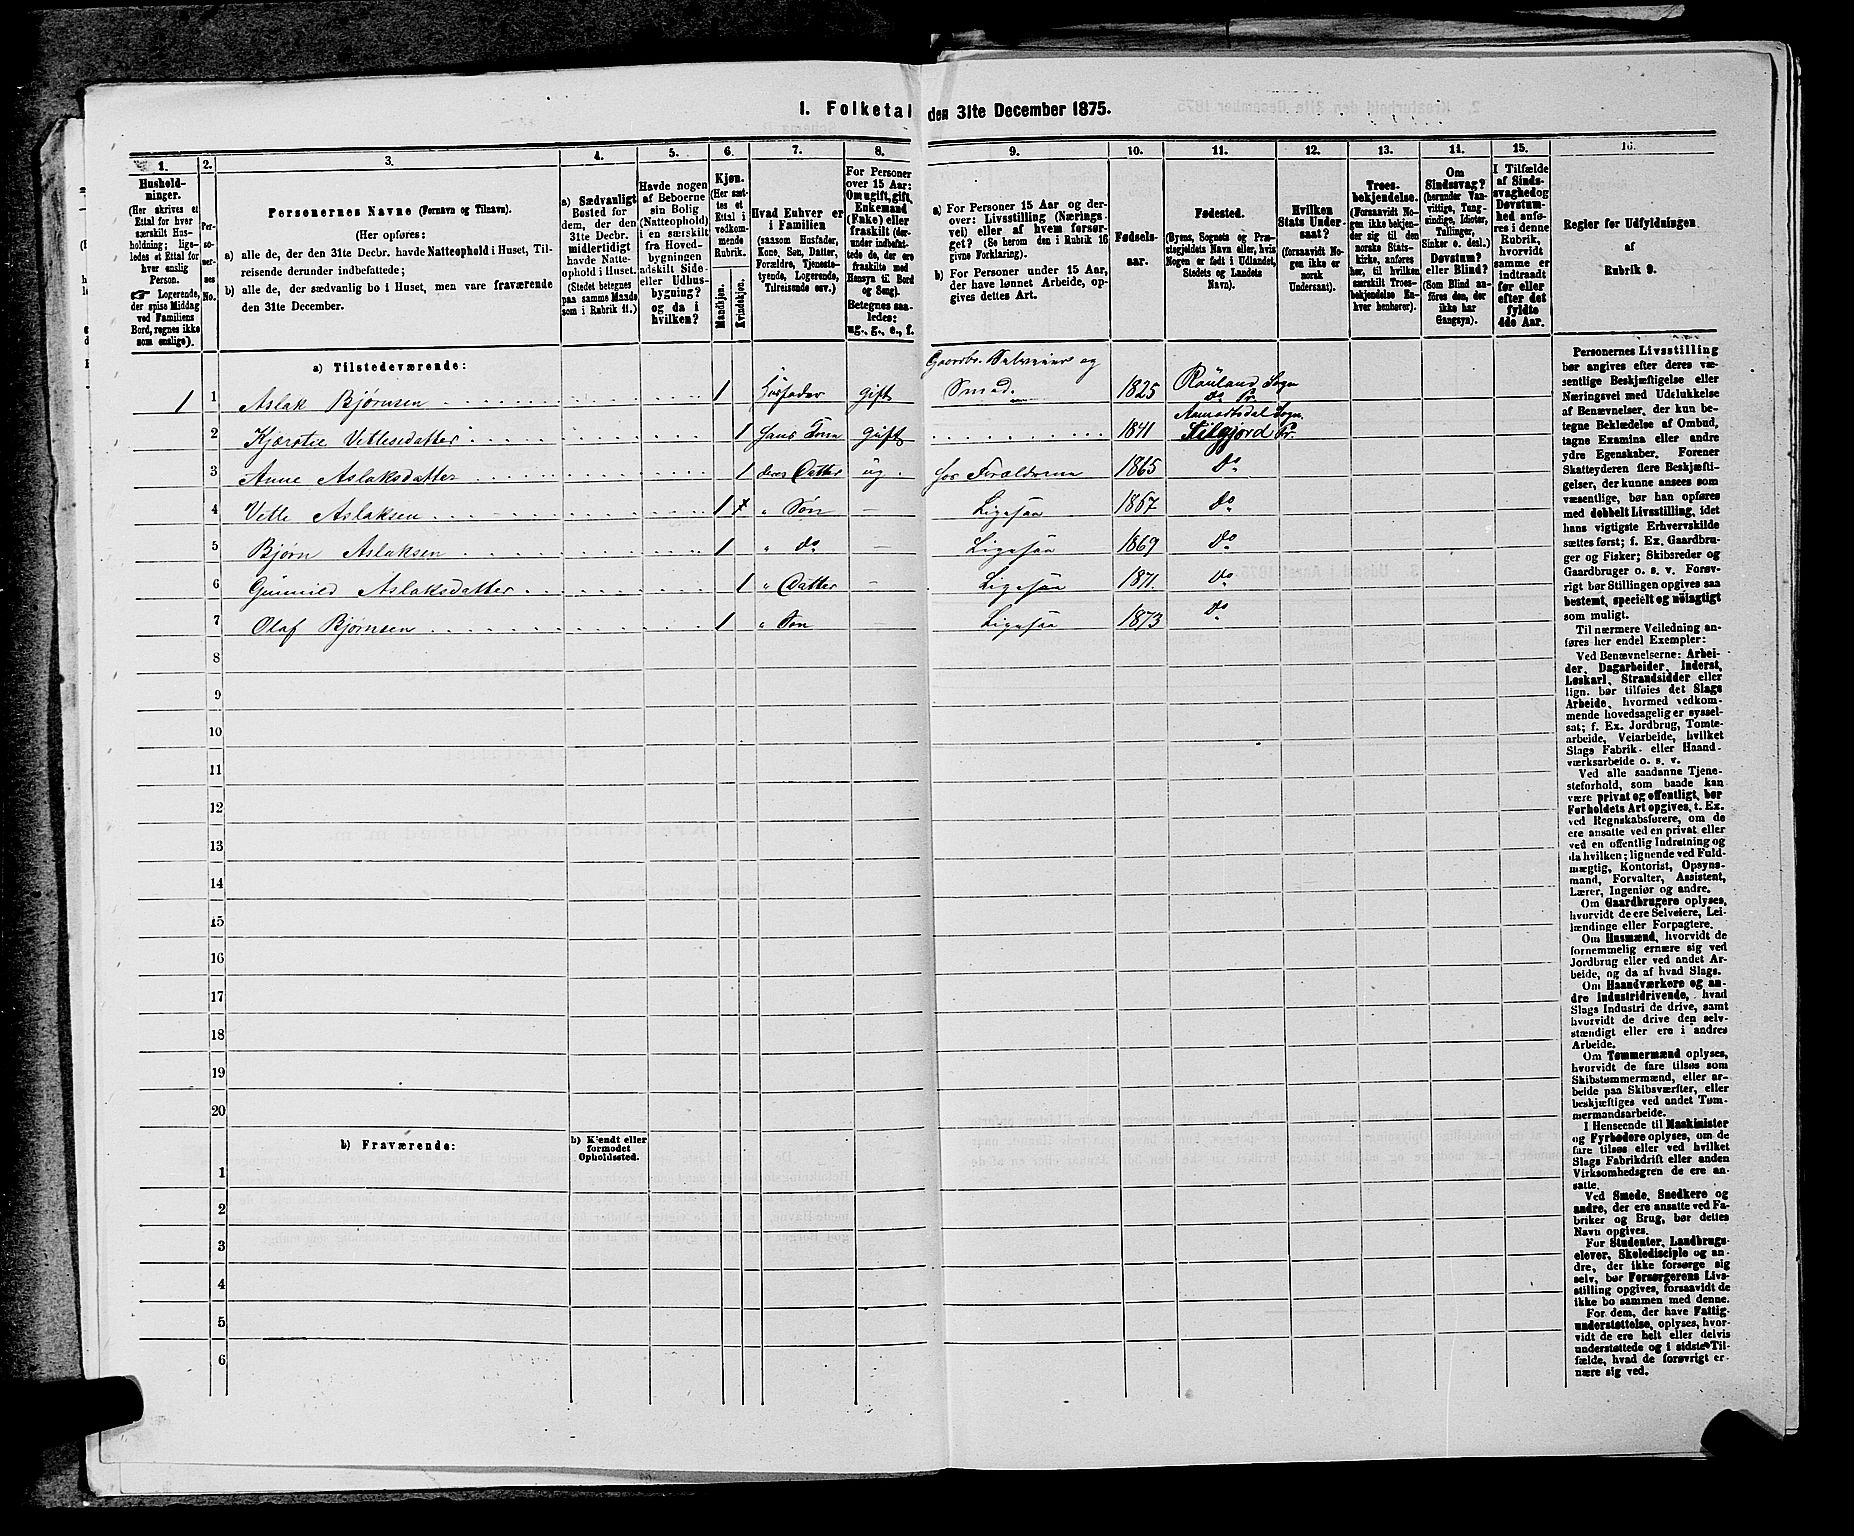 1. Folketal den 31te December 1875.
1. 2. 3. 4. 5. 6. 7. 8. 9. 10. 11. 12. 13. 14. 15. 16.
Hushold-
ninger.
(Her skrives et
Ettal for hver
særskilt Hus-
holdning; lige-
ledes et Ettal for
hver enslig
Person.
☞ Logerende,
der spise Middag
ved Familiens
Bord, regnes ikke
som enslige).
Per-
so-
ner-
nes
No.
Personernes Navne (Fornavn og Tilnavn).
(Her opføres:
a) alle de, der den 31te Decbr. havde Natteophold i Huset, Til-
reisende derunder indbefattede;
b) alle de, der sædvanlig bo i Huset, men vare fraværende
den 31te December.
a) Sædvanligt
Bosted for
dem, der den
31te Decbr.
midlertidigt
havde Natte-
ophold i Huset.
(Stedet betegnes
paa samme Maade
som i Rubrik 11.)
Havde nogen
af Beboerne
sin Bolig
(Natteophold)
i en særskilt
fra Hoved-
bygningen
adskilt Side-
eller Udhus-
bygning?
og da i
hvilken?
Kjøn.
(Her sæt-
tes et
Ettal i
vedkom-
mende
Rubrik.
Mandkjøn.
Kvindekjøn.
Hvad Enhver er
i Familien
(saasom Husfader,
Kone, Søn, Datter,
Forældre, Tjeneste-
tyende, Logerende,
Tilreisende osv.)
For Personer
over 15 Aar:
Om ugift, gift,
Enkemand
(Enke) eller
fraskilt (der-
under indbefat-
tede de, der ere
fraskilte med
Hensyn til Bord
og Seng).
Betegnes saa-
ledes:
ug., g., e., f.
a) For Personer 15 Aar og der-
over: Livsstilling (Nærings-
vei) eller af hvem forsør-
get? (Se herom den i Rubrik 16
givne Forklaring).
b) For Personer under 15 Aar,
der have lønnet Arbeide, op-
gives dettes Art.
Fødsels-
aar.
Fødested.
(Byens, Sognets og Præ-
stegjeldets Navn eller, hvis
Nogen er født i Udlandet,
Stedets og Landets
Navn).
Hvilken
Stats Under-
saat?
(forsaavidt No-
gen ikke er
norsk
Undersaat).
Troes-
bekjendelse.
(Forsaavidt No-
gen ikke bekjen-
der sig til den
norske Stats-
kirke, anføres
her, til hvilken
særskilt Troes-
bekjendelse En-
hver henhører).
Om
Sindssvag?
(herunder Van-
vittige, Tung-
sindige, Idioter,
Tullinger,
Sinker o. desl.)
Døvstum?
eller Blind?
(Som Blind an-
føres den, der
ikke har
Gangsyn).
I Tilfælde
af Sinds-
svaghed og
Døvstum-
hed anfø-
res i denne
Rubrik,
hvorvidt
samme er
indtraadt
før eller
efter det
fyldte
4de Aar.
Regler for Udfyldningen
af
Rubrik 9.
a) Tilstedeværende:
Gaardbr. Selveier og
1 1 Aslak Bjørnsen 1 Husfader gift Smed 1825 Rauland Sogn
do Pr.
Aamodtsdal Sogn.
2 Kjærstie Vetlesdatter 1 hans Kone gift 1841 Silgjord Pr.
3 Anne Aslaksdatter 1 deres Datter ug. hos Forældrene 1865 do
4 Vetle Aslaksen 1 " Søn — Ligesaa 1867 do
5 Bjørn Aslaksen 1 " do — Ligesaa 1869 do
6 Gunnild Aslaksdatter 1 " Datter — Ligesaa 1871. do
7 Olaf Bjørnsen 1 " Søn — Ligesaa 1873 do
8
9
10
11
12
13
14
15
16
17
18
19
20
b) Fraværende:
b) Kjendt eller
formodet
Opholdssted.
1
2
3
4
5
6
Personernes Livsstilling
bør angives efter deres væ-
sentlige Beskjæftigelse eller
Næringsvei med Udelukkelse
af Benævnelser, der kun be-
tegne Beklædelse af Ombud,
tagne Examina eller andre
ydre Egenskaber. Forener
Skatteyderen flere Beskjæfti-
gelser, der kunne ansees som
væsentlige, bør han opføres
med dobbelt Livsstilling, idet
hans vigtigste Erhvervskilde
sættes først; f. Ex. Gaardbru-
ger og Fisker; Skibsreder og
Gaardbruger o. s. v. Forøv-
rigt bør Stillingen opgives saa
bestemt, specielt og nøiagtigt
som muligt.
Til nærmere Veiledning an-
føres her endel Exempler:
Ved Benævnelserne: Arbei-
der, Dagarbeider, Inderst,
Løskarl, Strandsidder eller
lign. bør tilføies det Slags
Arbeide, hvormed vedkom-
mende hovedsagelig er syssel-
sat; f. Ex. Jordbrug, Tomte-
arbeide, Veiarbeide, hvilket
Slags Fabrik- eller Haand-
værksarbeide o. s. v.
Ved alle saadanne Tjene-
steforhold, som baade kan
være privat og offentligt, bør
Forholdets Art opgives, t. Ex.
ved Regnskabsførere, om de
ere ansatte ved en privat eller
ved en offentlig Indretning og
da hvilken; lignende ved Fuld-
mægtig, Kontorist, Opsyns-
mand, Forvalter, Assistent,
Lærer, Ingeniør og andre.
Om Gaardbrugere oplyses,
hvorvidt de ere Selveiere, Lei-
lændinge eller Forpagtere.
Om Husmænd, hvorvidt de
fornemmelig ernære sig ved
Jordbrug eller ved andet Ar-
beide, og da af hvad Slags.
Om Haandværkere og an-
dre Industridrivende, hvad
Slags Industri de drive, samt
hvorvidt de drive den selv-
stændigt eller ere i andres
Arbeide.
Om Tømmermænd oplyses,
hvorvidt de fare tilsøs som
Skibstømmermænd, eller ar-
beide paa Skibsværfter, eller
beskjæftiges ved andet Tøm-
mermandsarbeide.
I Henseende til Maskinister
og Fyrbødere oplyses, om de
fare tilsøs eller ved hvilket
Slags Fabrikdrift eller anden
Virksomhedsgren de ere an-
satte.
Ved Smede, Snedkere og
andre, der ere ansatte ved Fa-
briker og Brug, bør dettes
Navn opgives.
For Studenter, Landbrugs-
elever, Skoledisciple og an-
dre, der ikke forsørge sig
selv, bør Forsørgerens Livs-
stilling opgives, forsaavidt de
ikke bo sammen med denne.
For dem, der have Fattig-
understøttelse, oplyses, hvor-
vidt de ere helt eller delvis
understøttede og i sidste Til-
fælde, hvad de forøvrigt er-
nære sig ved.